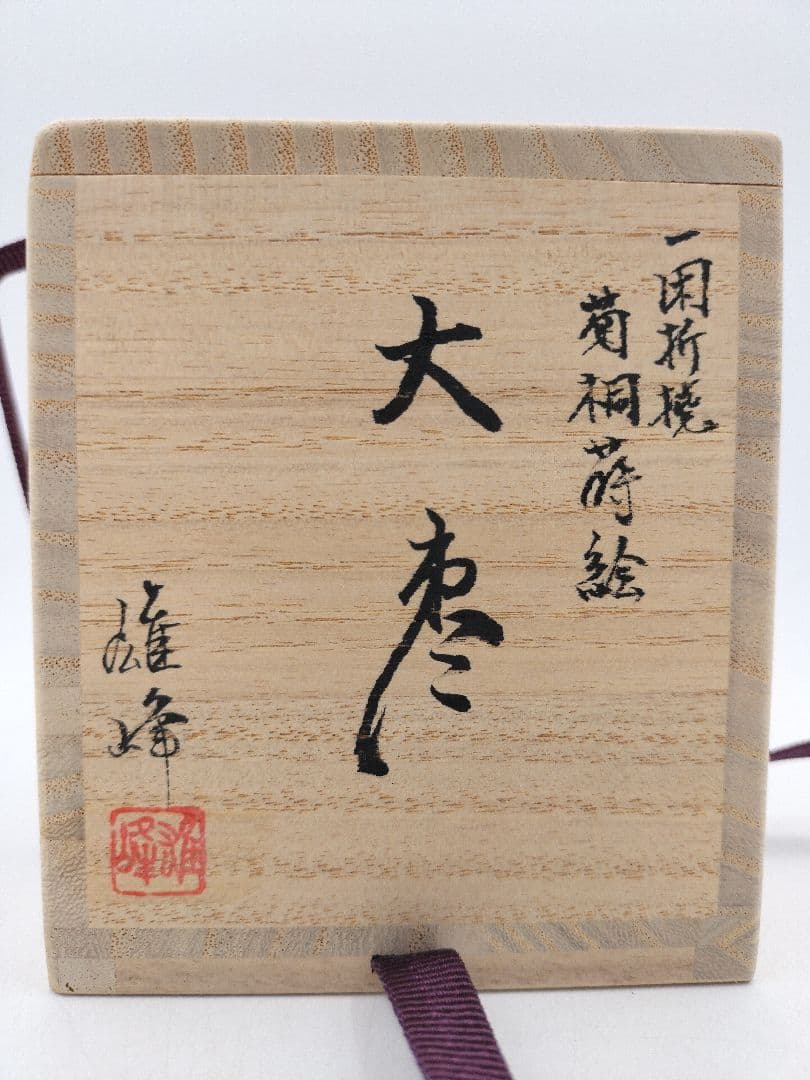 一閑折撓
菊桐蒔絵
大棗
雄峰
雄峰